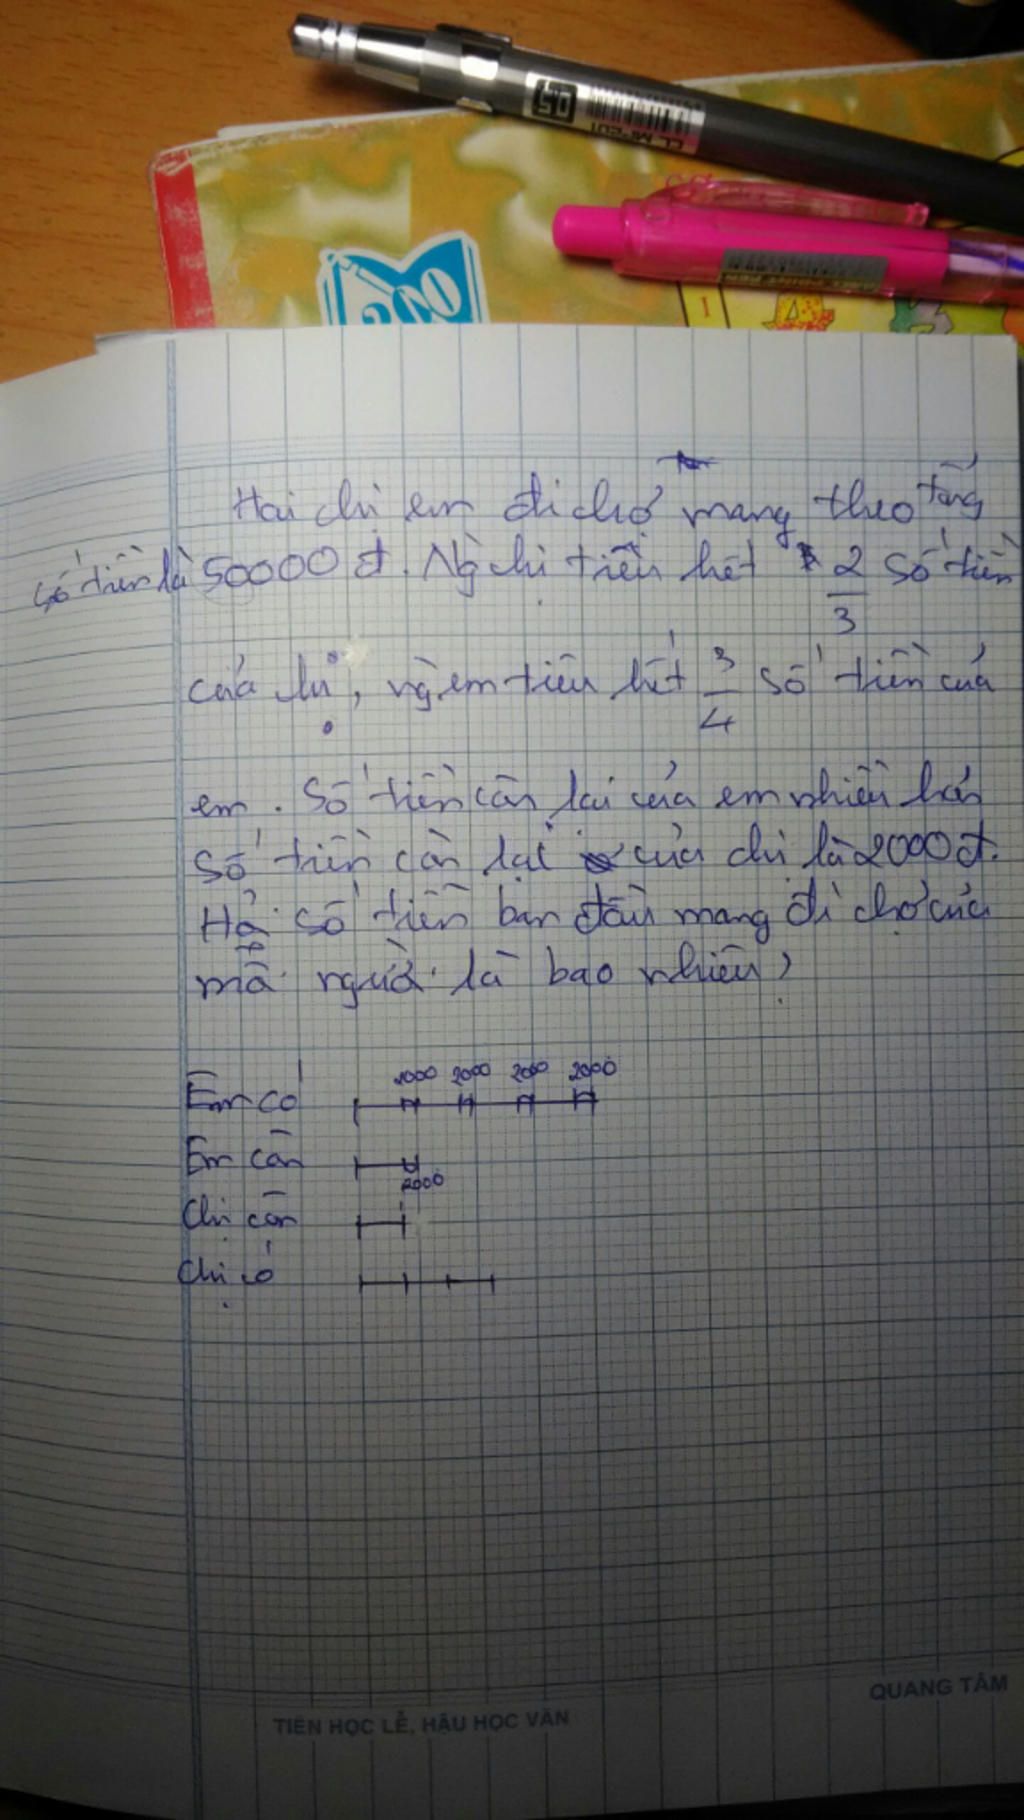 0.5
CL. MERCUT
200
I
Hai chị em đi chợ mang theo tổng
số tiền là 50000 đ. Ng chị tiền hết 2/3 số tiền
của chị, ng em tiêu hết 3/4 số tiền của
em. Số tiền còn lại của em nhiều hơn
số tiền còn lại của chị là 2000 đ.
Hỏi số tiền ban đầu mang đi chợ của
mỗi người là bao nhiêu?
2000 2000 2000 2000
Em có
Em còn
2000
Chị còn
Chị có
QUANG TÂM
TIÊN HỌC LỄ, HẬU HỌC VĂN